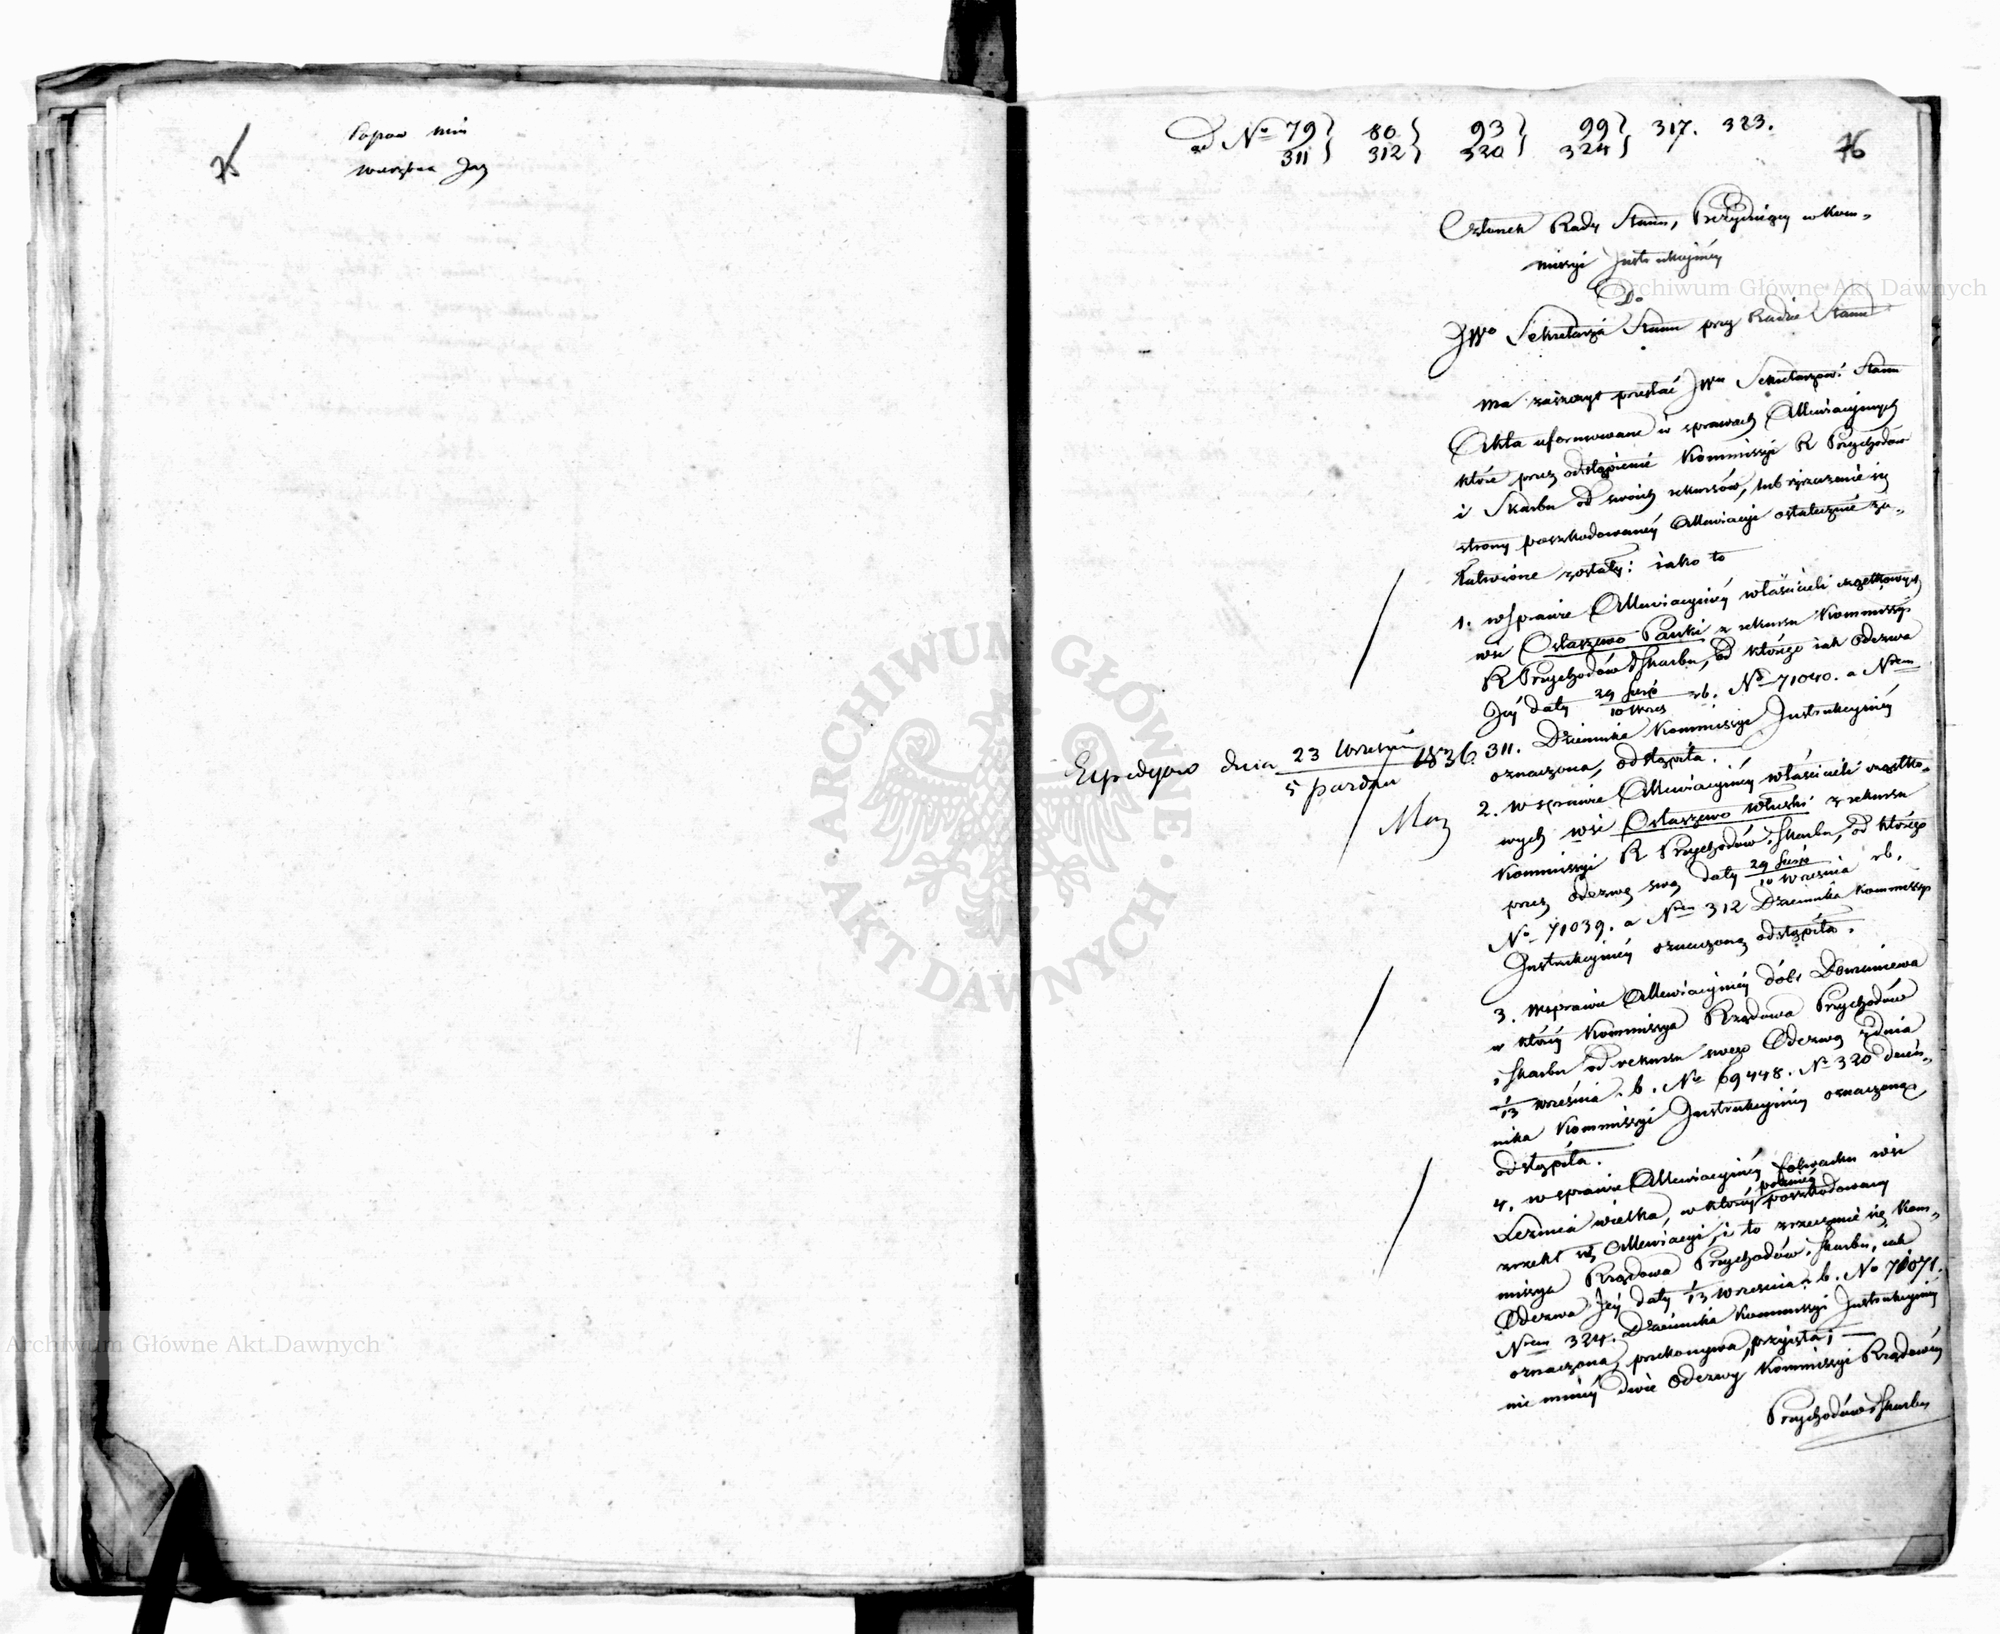 75
ad No 79} 80} 93} 99} 317. 323.
311} 312} 320} 324}
76
Członek Rady Stanu, Prezydujący w Kom-
missyi Instrukcyjnéy
Do
JWo Sekretarza Stanu przy Radzie Stanu
Ma zaszczyt przesłać JWu Sekretarzowi Stanu
Akta uformowane w sprawach Allewiacyjnych
które przez odstąpienie Kommissyi R Przychodów
i Skarbu od swoich rekursów, lub zrzeczenie się
strony poszkodowanéy Allewiacyi ostatecznie za-
łatwione zostały: iako to
1. w sprawie Allewiacyinéy właścicieli cząstkowych
wsi Ostaszewo Pańki z rekursu Kommissyi
R Przychodów i Skarbu, od którego iak Odezwa
Jéy daty 29 Sierp/10 Wrześ rb. No 71040. a Nrem
311. Dziennika Kommissyi Instrukcyinéy
oznaczona, odstąpiła.
Expedyow dnia 23 Wrześnin/5 Paźdz 1836
2. w sprawie Allewiacyinéy właścicieli cząstko-
wych wsi Ostaszewo Włuski z rekursu
Kommissyi R Przychodów i Skarbu, od którego
przez Odezwę swą daty 29 Sierp/10 Września rb.
No 71039. a Nrem 312 Dziennika Kommissyi
Instrukcyinéy oznaczoną odstąpiła.
3. w sprawie Allewiacyinéy dóbr Domaniewa
w któréy Kommissya Rządowa Przychodów
i Skarbu od rekursu swego Odezwą z dnia
1/13 września r. b. No 69448. No 320 dzien-
nika Kommissyi Instrukcyinéy oznaczoną
odstąpiła.
4. w sprawie Allewiacyinéy folwarku wsi
Leźnica wielka, w któréy później poszkodowany
zrzekł się Allewiacyi, i to zrzeczenie się Kom-
missya Rządowa Przychodów i Skarbu, iak
Odezwa Jéy daty 1/13 września r. b. No 71071.
Nrem 324. Dziennika Kommissyi Instrukcyinéy
oznaczona, przekonywa, przyjęła; —
nie mniéy dwie Odezwy Kommissyi Rządowéy
Przychodów i Skarbu
Archiwum Główne Akt Dawnych
ARCHIWUM GŁÓWNE AKT DAWNYCH
Archiwum Główne Akt Dawnych